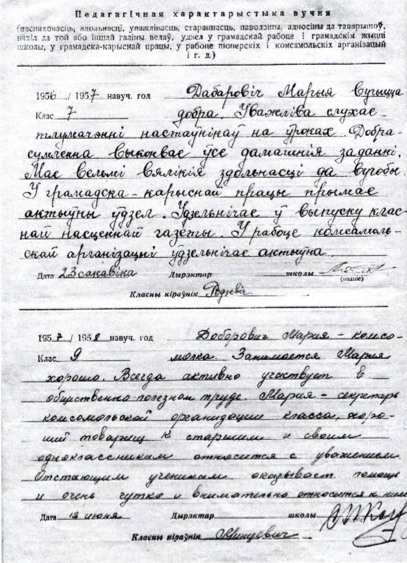 Педагагічная характарыстыка вучня
(паспяховасць, здольнасці, уважлівасць, стараннасць, паводзіны, адносіны да таварышоў,
нахіл да той або іншай галіны ведаў, удзел у грамадскай рабоце і грамадскім жыцці
школы, у грамадска-карыснай працы, у рабоце піонерскіх і комсамольскіх арганізацый
і г. д.)
1956 / 1957 навуч. год Дабаровіч Марыя вучыцца
Клас 7 добра. Уважліва слухае
тлумачэнні настаўнікаў на ўроках. Добра-
сумленна выконвае ўсе дамашнія заданні.
Мае вельмі вялікія здольнасці да вучобы.
У грамадска-карыснай працы прымае
актыўны ўдзел. Удзельнічае ў выпуску клас-
най насценнай газеты. У рабоце комсамоль-
скай арганізацыі удзельнічае актыўна.
Дата Дырэктар школы
Класны кіраўнік
1957 / 1958 навуч. год Доборович Мария - комсо-
Клас 9 молка. Занимается Мария
хорошо. Всегда активно участвует в
общественно-полезном труде. Мария - секретарь
комсомольской организации класса, хоро-
ший товарищ. К старшим и своим
одноклассникам относится с уважением.
Отстающим ученикам оказывает помощь
и очень чутко и внимательно относится к ним
Дата 12 июня Дырэктар школы
Класны кіраўнік